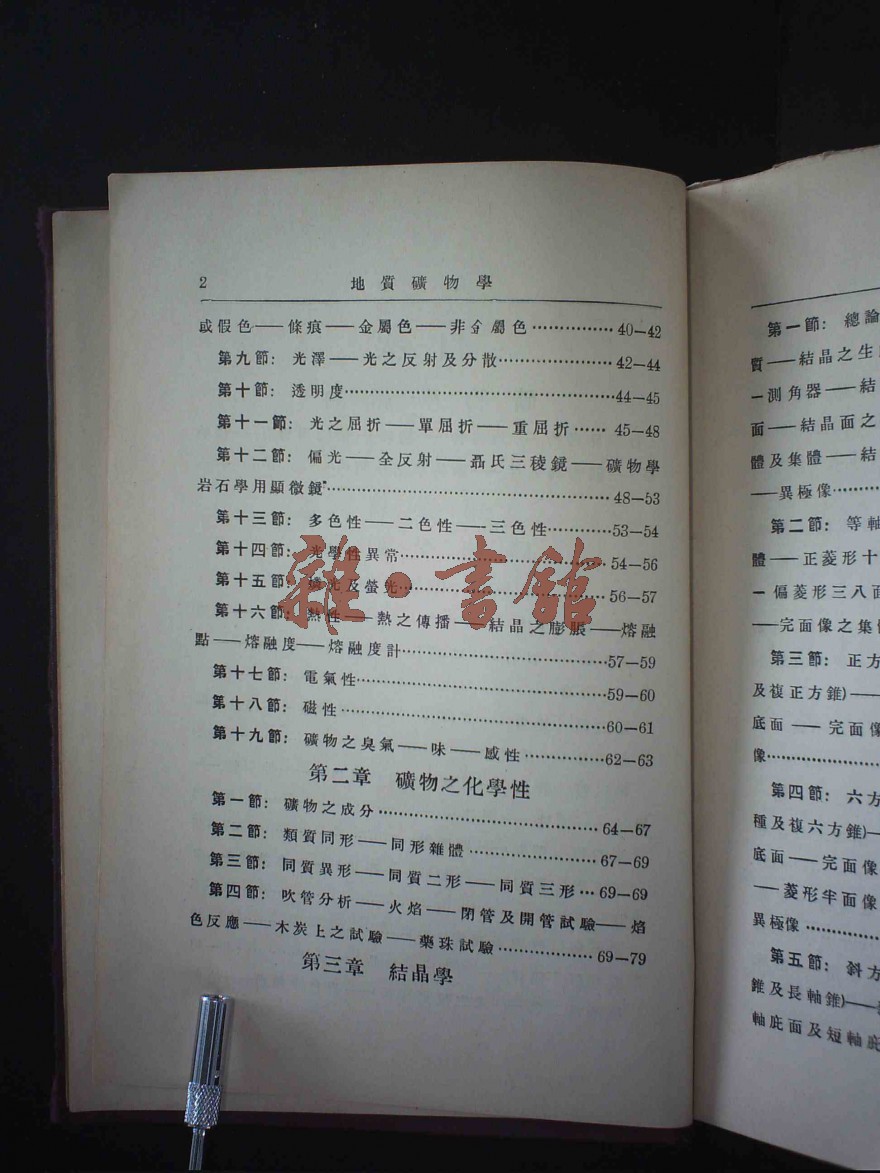 2 地質礦物學
或假色——條痕——金屬色——非金屬色……………40—42
第九節：光澤——光之反射及分散……………42—44
第十節：透明度……………44—45
第十一節：光之屈折——單屈折——重屈折……45—48
第十二節：偏光——全反射——聶氏三稜鏡——礦物學
岩石學用顯微鏡……………48—53
第十三節：多色性——二色性——三色性……………53—54
第十四節：光學性異常……………54—56
第十五節：燐光及螢光……………56—57
第十六節：熱性——熱之傳播——結晶之膨脹——熔融
點——熔融度——熔融度計……………57—59
第十七節：電氣性……………59—60
第十八節：磁性……………60—61
第十九節：礦物之臭氣——味——感性……………62—63
第二章 礦物之化學性
第一節：礦物之成分……………64—67
第二節：類質同形——同形雜體……………67—69
第三節：同質異形——同質二形——同質三形…69—69
第四節：吹管分析——火焰——閉管及開管試驗——焰
色反應——木炭上之試驗——藥珠試驗……………69—79
第三章 結晶學
雜·書館
第一節：總論
質——結晶之生
—測角器——結
面——結晶面之
體及集體——結
——異極像……
第二節：等軸
體——正菱形十
—偏菱形三八面
——完面像之集
第三節：正方
及複正方錐)——
底面——完面像
像……………
第四節：六方
種及複六方錐)—
底面——完面像
——菱形半面像
異極像……………
第五節：斜方
錐及長軸錐)——
軸庇面及短軸庇